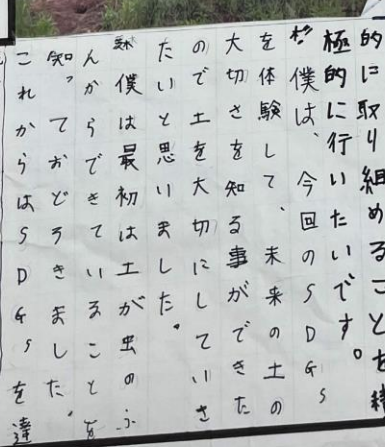 的に取り組めることを積
極的に行いたいです。
僕は、今回のSDGS
を体験して、未来の土の
大切さを知る事ができた
ので土を大切にしていき
たいと思いました。
僕は最初は土が虫のふ
んからできていることを
知っておどろきました。
これからはSDGSを達